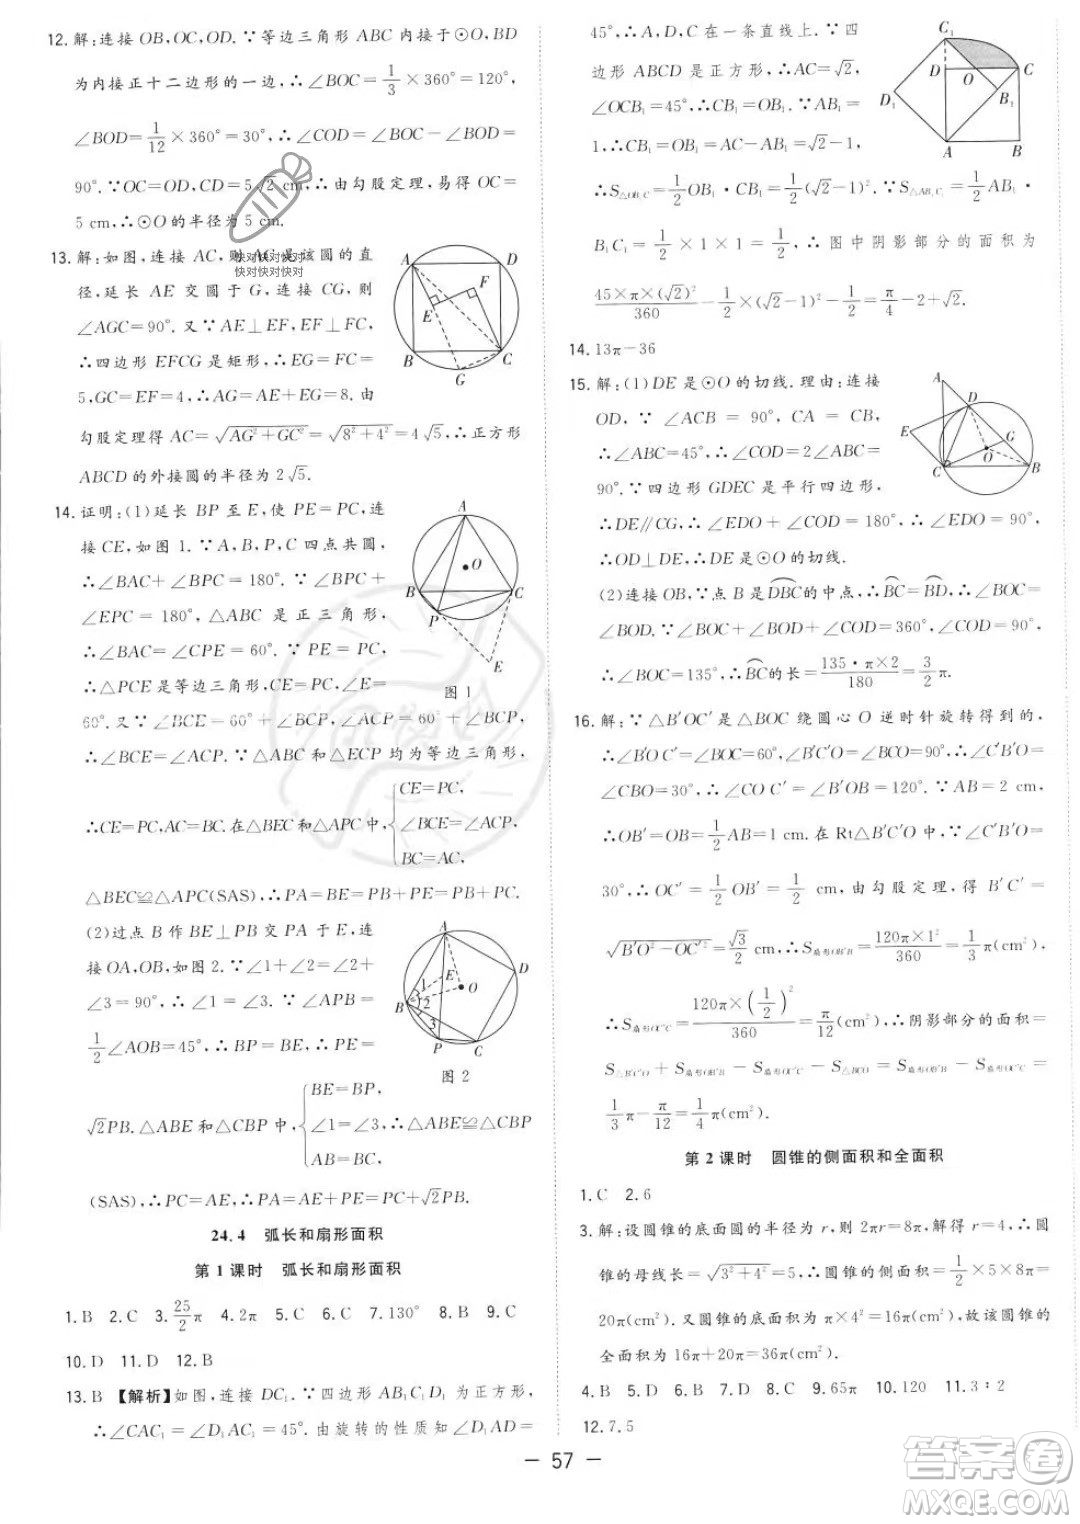 12. 解:连接 OB,OC,OD.∵等边三角形 ABC 内接于⊙O,BD
为内接正十二边形的一边,∴∠BOC=1/3×360°=120°,
∠BOD=1/12×360°=30°,∴∠COD=∠BOC-∠BOD=
90°.∵OC=OD,CD=5√2 cm,∴由勾股定理,易得 OC=
5 cm,∴⊙O 的半径为 5 cm.
13. 解:如图,连接 AC,则 AC 是该圆的直
径,延长 AE 交圆于 G,连接 CG,则
∠AGC=90°.又∵AE⊥EF,EF⊥FC,
∴四边形 EFCG 是矩形,∴EG=FC=
5,GC=EF=4,∴AG=AE+EG=8.由
勾股定理得 AC=√(AG²+GC²)=√(8²+4²)=4√5,∴正方形
ABCD 的外接圆的半径为 2√5.
A D F E B C G
快对快对快对
快对快对快对
14. 证明:(1)延长 BP 至 E,使 PE=PC,连
接 CE,如图 1.∵A,B,P,C 四点共圆,
∴∠BAC+∠BPC=180°.∵∠BPC+
∠EPC=180°,△ABC 是正三角形,
∴∠BAC=∠EPC=60°.∵PE=PC,
∴△PCE 是等边三角形,CE=PC,∠E=
60°.又∵∠BCE=60°+∠BCP,∠ACP=60°+∠BCP,
∴∠BCE=∠ACP.∵△ABC 和△ECP 均为等边三角形,
∴CE=PC,AC=BC.在△BEC 和△APC 中,{CE=PC, ∠BCE=∠ACP, BC=AC,
△BEC≌△APC(SAS),∴PA=BE=PB+PE=PB+PC.
A O B C P E
图 1
(2)过点 B 作 BE⊥PB 交 PA 于 E,连
接 OA,OB,如图 2.∵∠1+∠2=∠2+
∠3=90°,∴∠1=∠3.∵∠APB=
1/2∠AOB=45°,∴BP=BE,∴PE=
√2PB.△ABE 和△CBP 中,{BE=BP, ∠1=∠3, AB=BC,∴△ABE≌△CBP
(SAS),∴PC=AE,∴PA=AE+PE=PC+√2PB.
A D E 1 O B 2 3 P C
图 2
24.4 弧长和扇形面积
第 1 课时 弧长和扇形面积
1. B 2. C 3. 25/2π 4. 2π 5. C 6. C 7. 130° 8. B 9. C
10. D 11. D 12. B
13. B 【解析】如图,连接 DC₁.∵四边形 AB₁C₁D₁ 为正方形,
∴∠CAC₁=∠C₁AD₁=45°.由旋转的性质知∠D₁AD=
45°,∴A,D,C₁ 在一条直线上.∵四
边形 ABCD 是正方形,∴AC=√2,
∠OCB₁=45°,∴CB₁=OB₁.∵AB₁=
1,∴CB₁=OB₁=AC-AB₁=√2-1,
∴S△OB₁C=1/2OB₁·CB₁=1/2(√2-1)².∵S△AB₁C₁=1/2AB₁·
B₁C₁=1/2×1×1=1/2,∴图中阴影部分的面积为
45×π×(√2)²/360-1/2×(√2-1)²-1/2=π/4-2+√2.
C₁ D O C D₁ B₁ A B
14. 13π-36
15. 解:(1)DE 是⊙O 的切线.理由:连接
OD,∵∠ACB=90°,CA=CB,
∴∠ABC=45°,∴∠COD=2∠ABC=
90°.∵四边形 GDEC 是平行四边形,
∴DE∥CG,∴∠EDO+∠COD=180°,∴∠EDO=90°,
∴OD⊥DE,∴DE 是⊙O 的切线.
A D E G O C B
(2)连接 OB,∵点 B 是DBC的中点,∴BC=BD,∴∠BOC=
∠BOD.∵∠BOC+∠BOD+∠COD=360°,∠COD=90°,
∴∠BOC=135°,∴BC的长=135·π×2/180=3/2π.
16. 解:∵△B′OC′是△BOC 绕圆心 O 逆时针旋转得到的,
∴∠B′OC′=∠BOC=60°,∠B′C′O=∠BCO=90°,∴∠C′B′O=
∠CBO=30°,∴∠COC′=∠B′OB=120°.∵AB=2 cm,
∴OB′=OB=1/2AB=1 cm.在 Rt△B′C′O 中,∵∠C′B′O=
30°,∴OC′=1/2OB′=1/2 cm,由勾股定理,得 B′C′=
√(B′O²-OC′²)=√3/2 cm,∴S扇形OB′B=120π×1²/360=1/3π(cm²),
∴S扇形OC′C=120π×(1/2)²/360=π/12(cm²),∴阴影部分的面积=
S△B′C′O+S扇形OB′B-S扇形OC′C-S△BCO=S扇形OB′B-S扇形OC′C=
1/3π-π/12=1/4π(cm²).
第 2 课时 圆锥的侧面积和全面积
1. C 2. 6
3. 解:设圆锥的底面圆的半径为 r,则 2πr=8π,解得 r=4,∴圆
锥的母线长=√(3²+4²)=5,∴圆锥的侧面积=1/2×5×8π=
20π(cm²).又圆锥的底面积为 π×4²=16π(cm²),故该圆锥的
全面积为 16π+20π=36π(cm²).
4. B 5. B 6. D 7. B 8. C 9. 65π 10. 120 11. 3∶2
12. 7.5
— 57 —
答案圈
MXQE.COM